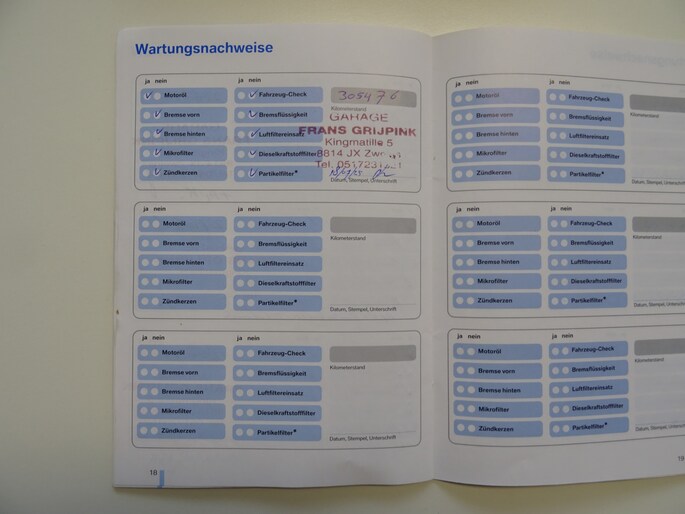 Wartungsnachweise
ja nein
Motoröl
Bremse vorn
Bremse hinten
Mikrofilter
Zündkerzen
ja nein
Fahrzeug-Check
Bremsflüssigkeit
Luftfiltereinsatz
Dieselkraftstofffilter
Partikelfilter*
305476
Kilometerstand
GARAGE
FRANS GRIJPINK
Kingmatille 5
8814 JX
Tel.
Datum, Stempel, Unterschrift
ja nein
Motoröl
Bremse vorn
Bremse hinten
Mikrofilter
Zündkerzen
ja nein
Fahrzeug-Check
Bremsflüssigkeit
Luftfiltereinsatz
Dieselkraftstofffilter
Partikelfilter*
Kilometerstand
Datum, Stempel, Unterschrift
ja nein
Motoröl
Bremse vorn
Bremse hinten
Mikrofilter
Zündkerzen
ja nein
Fahrzeug-Check
Bremsflüssigkeit
Luftfiltereinsatz
Dieselkraftstofffilter
Partikelfilter*
Kilometerstand
Datum, Stempel, Unterschrift
18
ja nein
Motoröl
Bremse vorn
Bremse hinten
Mikrofilter
Zündkerzen
ja nein
Fahrzeug-Check
Bremsflüssigkeit
Luftfiltereinsatz
Dieselkraftstofffilter
Partikelfilter*
Kilometerstand
Datum, Stempel, Unterschrift
ja nein
Motoröl
Bremse vorn
Bremse hinten
Mikrofilter
Zündkerzen
ja nein
Fahrzeug-Check
Bremsflüssigkeit
Luftfiltereinsatz
Dieselkraftstofffilter
Partikelfilter*
Kilometerstand
Datum, Stempel, Unterschrift
ja nein
Motoröl
Bremse vorn
Bremse hinten
Mikrofilter
Zündkerzen
ja nein
Fahrzeug-Check
Bremsflüssigkeit
Luftfiltereinsatz
Dieselkraftstofffilter
Partikelfilter*
Kilometerstand
Datum, Stempel, Unterschrift
19